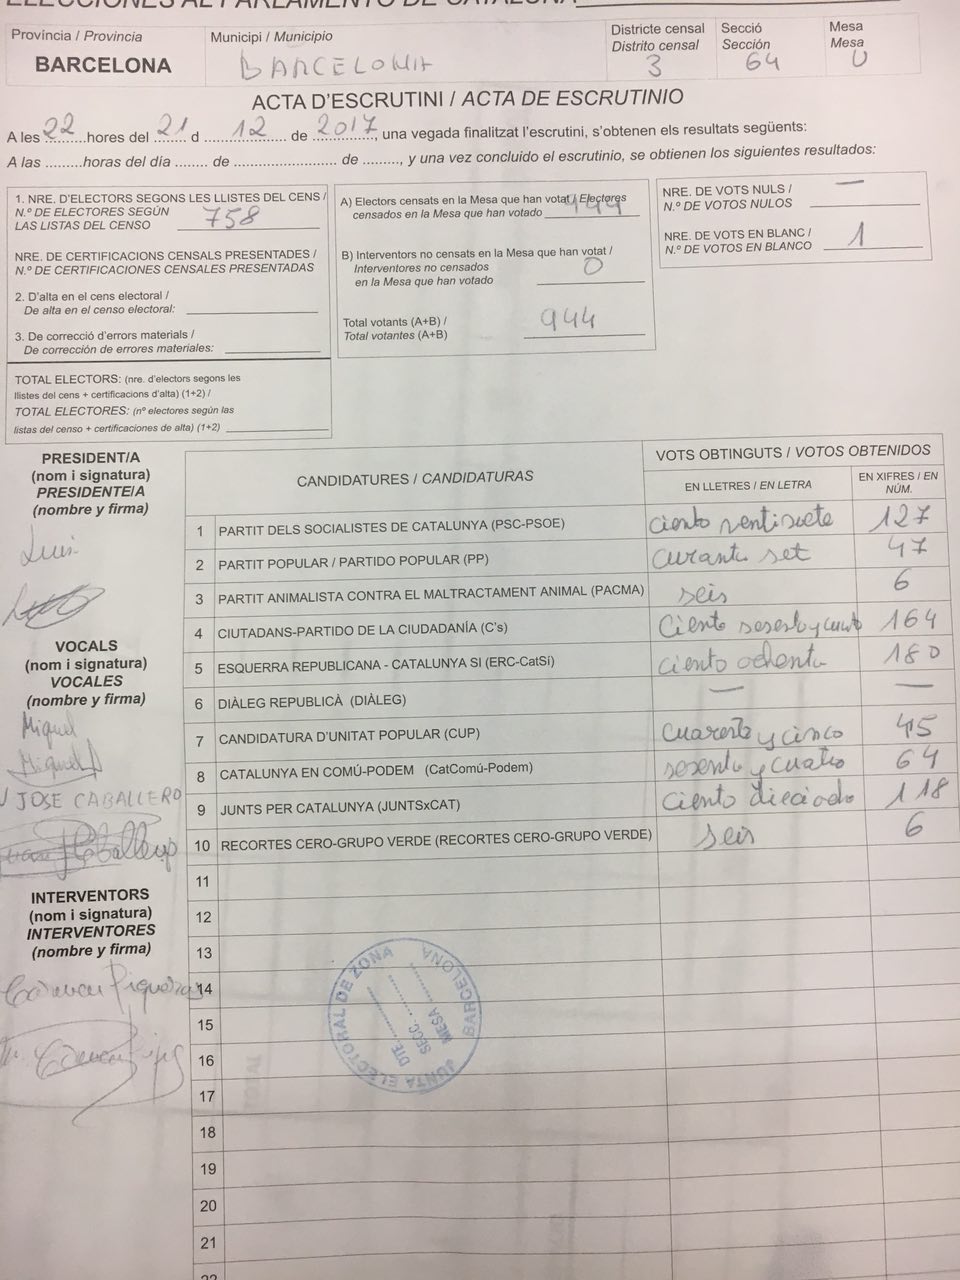 ELECCIONES AL PARLAMENTO DE CATALUÑA
Província / Provincia
BARCELONA
Municipi / Municipio
BARCELONA
Districte censal
Distrito censal
3
Secció
Sección
64
Mesa
Mesa
U
ACTA D'ESCRUTINI / ACTA DE ESCRUTINIO
A les 22 hores del 21 d 12 de 2017, una vegada finalitzat l'escrutini, s'obtenen els resultats següents:
A las ......... horas del día ........ de ......................... de ........., y una vez concluido el escrutinio, se obtienen los siguientes resultados:
1. NRE. D'ELECTORS SEGONS LES LLISTES DEL CENS /
N.º DE ELECTORES SEGÚN
LAS LISTAS DEL CENSO 758
NRE. DE CERTIFICACIONS CENSALS PRESENTADES /
N.º DE CERTIFICACIONES CENSALES PRESENTADAS
2. D'alta en el cens electoral /
De alta en el censo electoral:
3. De correcció d'errors materials /
De corrección de errores materiales:
TOTAL ELECTORS: (nre. d'electors segons les
llistes del cens + certificacions d'alta) (1+2) /
TOTAL ELECTORES: (nº electores según las
listas del censo + certificaciones de alta) (1+2)
A) Electors censats en la Mesa que han votat / Electores
censados en la Mesa que han votado 944
B) Interventors no censats en la Mesa que han votat /
Interventores no censados
en la Mesa que han votado 0
Total votants (A+B) /
Total votantes (A+B) 944
NRE. DE VOTS NULS /
N.º DE VOTOS NULOS —
NRE. DE VOTS EN BLANC /
N.º DE VOTOS EN BLANCO 1
PRESIDENT/A
(nom i signatura)
PRESIDENTE/A
(nombre y firma)
Luis
VOCALS
(nom i signatura)
VOCALES
(nombre y firma)
Miquel
Miquel
JOSE CABALLERO
INTERVENTORS
(nom i signatura)
INTERVENTORES
(nombre y firma)
Carmen Piqueras
CANDIDATURES / CANDIDATURAS
VOTS OBTINGUTS / VOTOS OBTENIDOS
EN LLETRES / EN LETRA
EN XIFRES / EN
NÚM.
1 PARTIT DELS SOCIALISTES DE CATALUNYA (PSC-PSOE) ciento ventisiete 127
2 PARTIT POPULAR / PARTIDO POPULAR (PP) curanta set 47
3 PARTIT ANIMALISTA CONTRA EL MALTRACTAMENT ANIMAL (PACMA) seis 6
4 CIUTADANS-PARTIDO DE LA CIUDADANÍA (C's) Ciento sesenta y cuatro 164
5 ESQUERRA REPUBLICANA - CATALUNYA SI (ERC-CatSí) ciento ochenta 180
6 DIÀLEG REPUBLICÀ (DIÀLEG) — —
7 CANDIDATURA D'UNITAT POPULAR (CUP) cuarenta y cinco 45
8 CATALUNYA EN COMÚ-PODEM (CatComú-Podem) sesenta y cuatro 64
9 JUNTS PER CATALUNYA (JUNTSxCAT) ciento dieciocho 118
10 RECORTES CERO-GRUPO VERDE (RECORTES CERO-GRUPO VERDE) seis 6
11
12
13
14
15
16
17
18
19
20
21
22
JUNTA ELECTORAL DE ZONA
BARCELONA
DTE.
SECC.
MESA